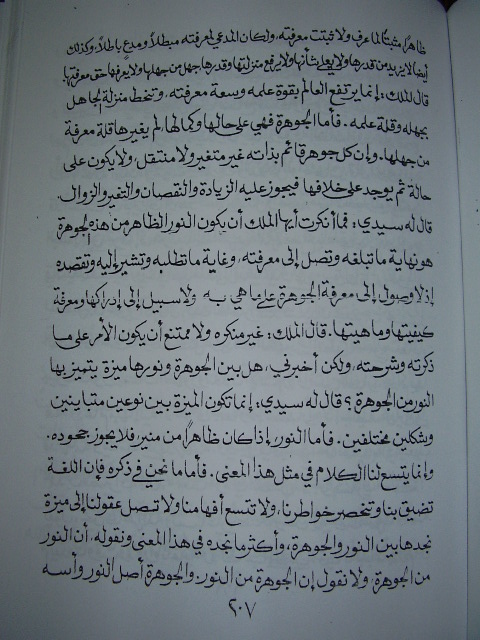 ظاهرًا مثبتًا لما عرف ولا ثبتت معرفته، ولكان المدعي لمعرفته مبطلًا ومدعٍ باطلًا، وكذلك
أيضا لا يزيد من قدرها ولا يعلي شأنها ولا يرفع منزلتها وقدرها جهل من جهلها ولا يعرفها حق معرفتها
قال الملك: إنما يرتفع العالم بقوة علمه وسعة معرفته، وتنخط منزلة الجاهل
بجهله وقلة علمه. فأما الجوهرة فهي على حالها وكمالها، لم يغيرها قلة معرفة
من جهلها. وإن كل جوهر قائم بذاته غير متغير ولا منتقل، ولا يكون على
حالة ثم يوجد على خلافها فيجوز عليه الزيادة والنقصان والتغير والزوال.
قال له سيدي: فما أنكرت أيها الملك أن يكون النور الظاهر من هذه الجوهرة
هو نهاية ما تبلغه وتصل إلى معرفته، وغاية ما تطلبه وتشير إليه وتقصده
إذ لا وصول إلى معرفة الجوهرة على ما هي به ولا سبيل إلى إدراكها ومعرفة
كيفيتها وماهيتها. قال الملك: غير منكره ولا ممتنع أن يكون الأمر على ما
ذكرته وشرحته، ولكن أخبرني، هل بين الجوهرة ونورها ميزة يتميز بها
النور من الجوهرة؟ قال له سيدي: إنما تكون الميزة بين نوعين متباينين
وشكلين مختلفين. فأما النور إذا كان ظاهرًا من منير، فلا يجوز جحوده.
وإنما يتسع لنا الكلام في مثل هذا المعنى. فأما ما نحن في ذكره فإن اللغة
تضيق بنا وتنحصر خواطرنا، ولا تتسع أفهامنا ولا تصل عقولنا إلى ميزة
نجدها بين النور والجوهرة، وأكثر ما نجده في هذا المعنى ونقوله. أن النور
من الجوهرة، ولا نقول إن الجوهرة من النور. والجوهرة أصل النور وأسه
٢٠٧